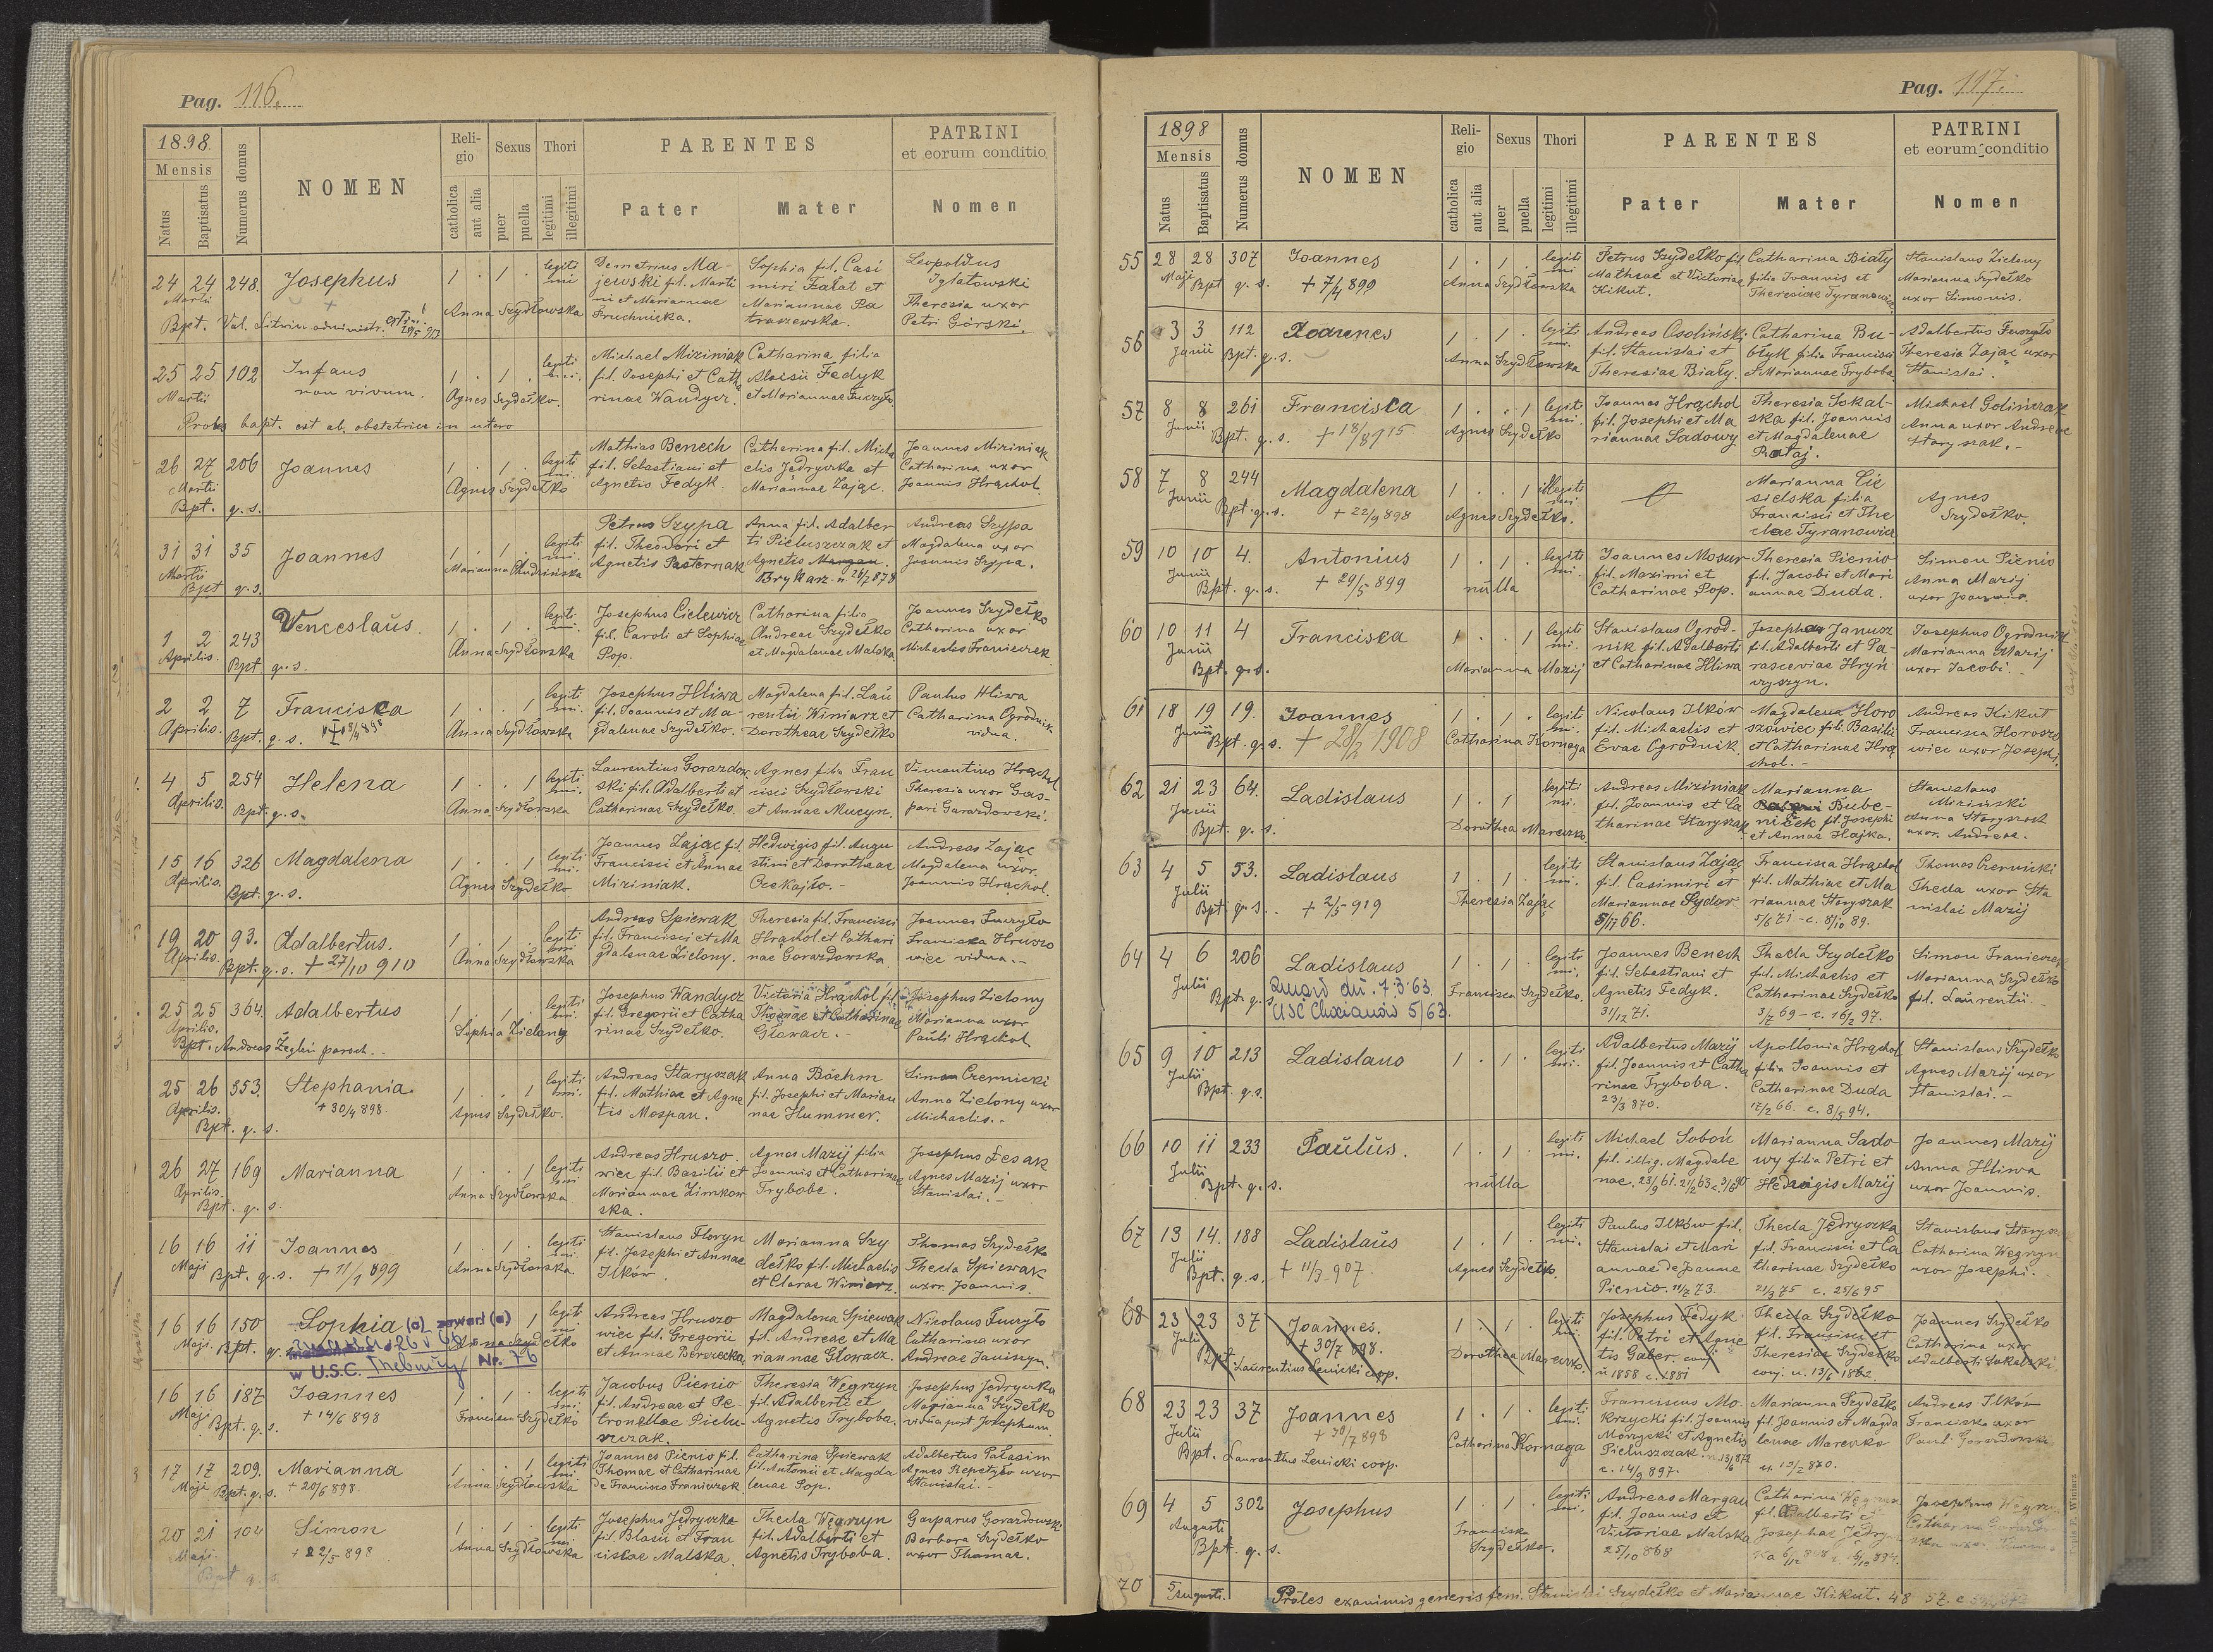 Pag. 116.
1898.
Mensis
Natus
Baptisatus
Numerus domus
NOMEN
Reli-
gio
catholica
aut alia
Sexus
puer
puella
Thori
legitimi
illegitimi
PARENTES
Pater
Mater
PATRINI
et eorum conditio
Nomen
24 24 248. Josephus 1 . 1 . legiti
mi
Martii
Anna Szydłowska
Demetrius Ma-
jewski fil. Marti
ni et Mariannae
Fruchnicka.
Sophia fil. Casi
miri Fałat et
Mariannae Pa
traszewska.
Leopoldus
Iglatowski
Theresia uxor
Petri Górski.
25 25 102 Infans
non vivum.
Martii
1 . 1 . legiti
mi.
Agnes Szydełko.
Proles bapt. est ab obstetrice in utero
Michael Miziniak
fil. Josephi et Cath
rinae Wandycz.
Catharina filia
Aloisii Fedyk
et Mariannae Furzyło
26 27 206 Joannes 1 . 1 . legiti
mi.
Martii
Bpt. q. s.
Agnes Szydełko
Mathias Benech
fil. Sebastiani et
Agnetis Fedyk.
Catherina fil. Micha
elis Jędryczka et
Mariannae Zając.
Joannes Miziniak
Catharina uxor
Joannis Hrąchol.
31 31 35 Joannes 1 . 1 . legiti
mi.
Martii
Bpt q. s.
Marianna
Petrus Szypa
fil. Theodori et
Agnetis Pasternak
Anna fil. Adalber
ti Pieluszczak et
Agnetis Mangau.
Brykarz n. 26/7 878
Andreas Szypa
Magdalena uxor
Joannis Szypa.
1 2 243 Venceslaus. 1 . 1 . legiti
mi.
Aprilis.
Bpt q. s.
Anna Szydłowska
Josephus Cielewicz
fil. Caroli et Sophiae
Pop.
Catharina filia
Andreae Szydełko
et Magdalenae Malska
Joannes Szydełko
Catharina uxor
Michaelis Franiczek
2 2 7 Francisca 1 . . 1 legiti
mi.
Aprilis.
Bpt. q. s.
Anna Szydłowska
Josephus Hliwa
fil. Joannis et Ma-
gdalenae Szydełko.
Magdalena fil. Lau
rentii Winiarz et
Dorotheae Szydełko
Paulus Hliwa
Catharina Ogrodnik
vidua.
4 5 254 Helena 1 . . 1 legiti
mi.
Aprilis.
Bpt. q. s.
Anna Szydłowska
Laurentius Gorazdow
ski fil. Adalberti et
Catharinae Szydełko.
Agnes filia Fran
cisci Szydłowski
et Annae Mucyn.
Vincentius Hrąchol
Theresia uxor Gas-
pari Garazdowski.
15 16 326 Magdalena 1 . . 1 legiti
mi.
Aprilis.
Bpt. q. s.
Agnes Szydełko
Joannes Zając fil.
Francisci et Annae
Miziniak.
Hedwigis fil. Augu
stini et Dorotheae
Czekajło.-
Andreas Zając
Magdalena uxor
Joannis Hrąchol
19 20 93. Adalbertus. 1 . 1 . legiti
mi
Aprilis.
Bpt. q. s. + 27/10 910
Anna Szydłowska
Andreas Spiewak
fil. Francisci et Ma
gdalenae Zielony.
Theresia fil. Francisci
Hrąchol et Cathari
nae Gorazdowska
Joannes Furzyło
Franciska Hruszo
wiec vidua.-
25 25 364. Adalbertus 1 . 1 . legiti
mi.
Aprilis.
Bpt. Andreas Żegleń paroch.-
Sophia Zielony
Josephus Wandycz
fil. Gregorii et Catha
rinae Szydełko.
Victoria Hrąchol fil.
Thomae et Catharinae
Głowacz.-
Josephus Zielony
Marianna uxor
Pauli Hrąchol
25 26 353. Stephania 1 . . 1 legiti
mi.
Aprilis. + 30/4 898.
Bpt. q. s.
Agnes Szydełko.
Andreas Staryszak
fil. Mathiae et Agne
tis Mospan.
Anna Böchm
fil. Josephi et Marian
nae Hummer.
Simon Czernicki
Anna Zielony uxor
Michaelis.-
26 27 169 Marianna 1 . . 1 legiti
mi
Aprilis.
Bpt. q. s.
Anna Szydłowska
Andreas Hruszo
wiec fil. Basilii et
Mariannae Zimkow
ska.
Agnes Mazij filia
Joannis et Catharinae
Tryboba.
Josephus Lesak
Agnes Mazij uxor
Stanislai.-
16 16 11 Joannes 1 . 1 . legiti
mi.
Maji
Bpt. q. s. + 11/1 899
Anna Szydłowska.
Stanislaus Floryn
fil. Josephi et Annae
Ilków
Marianna Szy
dełko fil. Michaelis
et Clarae Winiarz.
Thomas Szydełko
Thecla Spiewak
uxor Joannis.
16 16 150 Sophia (a) zawarł (a) 1 legiti
mi
Maji. Bpt. q. s.
w U.S.C. Nr. 76
Andreas Hruszo
wiec fil. Gregorii
et Annae Berezecka
Magdalena Spiewak
fil. Andreae et Ma
riannae Głowacz.
Nicolaus Furzyło
Catharina uxor
Andreae Janiszyn.
16 16 187 Joannes 1 . 1 . legiti
mi.
Maji + 14/6 898
Bpt. q. s.
Francisca Szydełko
Jacobus Pienio
fil. Andreae et Pe-
tronellae Pielu-
szczak.
Theresia Węgrzyn
fil. Adalberti et
Agnetis Tryboba.
Josephus Jędryczka
Marianna Szydełko
vidua post Josephum.
17 17 209. Marianna 1 . . 1 legiti
mi.
Maji Bpt. q. s. + 20/6 898
Anna Szydłowska
Joannes Pienio fil.
Thomae et Catharinae
de Francisco Franiczek
Catharina Spiewak
fil. Antonii et Magda
lenae Pop.
Adalbertus Pałasim
Agnes Rzepetyło uxor
Stanislai.-
20 21 104 Simon 1 . 1 . legiti
mi.
Maji + 22/5 898
Bpt q. s.
Anna Szydłowska
Josephus Jędryczka
fil. Blasii et Fran
ciscae Malska.
Thecla Węgrzyn
fil. Adalberti et
Agnetis Tryboba.
Gasparus Gorazdowski
Barbara Szydełko
uxor Thomae.
Pag. 117.
1898
Mensis
Natus
Baptisatus
Numerus domus
NOMEN
Reli-
gio
catholica
aut alia
Sexus
puer
puella
Thori
legitimi
illegitimi
PARENTES
Pater
Mater
PATRINI
et eorum conditio
Nomen
55 28 28 307 Joannes 1 . 1 . legiti
mi
Maji Bpt q. s. + 7/4 899
Anna Szydłowska
Petrus Szydełko fil
Mathiae et Victoriae
Kikut.
Catharina Biały
filia Joannis et
Theresiae Tyranowicz
Stanislaus Zielony
Marianna Szydełko
uxor Simonis.
56 3 3 112 Joannes 1 . 1 . legiti
mi.
Junii Bpt. q. s.
Anna Szydłowska
Andreas Osoliński
fil. Stanislai et
Theresiae Biały.
Catharina Bu-
btyk filia Francisci
et Mariannae Tryboba.
Adalbertus Furzyło
Theresia Zając uxor
Stanislai.
57 8 8 261 Francisca 1 . . 1 legiti
mi.
Junii Bpt. q. s. + 18/8 915
Agnes Szydełko
Joannes Hrąchol
fil. Josephi et Ma
riannae Sadowy
Theresia Sokal-
ska fil. Joannis
et Magdalenae
Rataj.
Michael Golińczak
Anna uxor Andreae
Staryszak.-
58 7 8 244 Magdalena 1 . . 1 illegiti
mi.
Junii Bpt. q. s. + 22/9 898
Agnes Szydełko.
Marianna Cie
sielska filia
Francisci et The
clae Tyranowicz
Agnes
Szydełko.
59 10 10 4. Antonius 1 . 1 . legiti
mi.
Junii Bpt. q. s. + 29/5 899
nulla
Joannes Mosur
fil. Maximi et
Catharinae Pop.
Theresia Pienio
fil. Jacobi et Mari
annae Duda.
Simon Pienio
Anna Mazij
uxor Joannis.
60 10 11 4 Francisca 1 . . 1 legiti
mi.
Junii Bpt. q. s.
Marianna Mazij
Stanislaus Ogrod-
nik fil. Adalberti
et Catharinae Hliwa
Josepha Janusz
fil. Adalberti et Pa-
rasceviae Hryń
czyszyn.
Josephus Ogrodnik
Marianna Mazij
uxor Jacobi.-
61 18 19 19. Joannes 1 . 1 . legiti
mi.
Junii Bpt. q. s. + 28/2 1908
Catharina Kornaga
Nicolaus Ilków
fil. Michaelis et
Evae Ogrodnik.
Magdalena Horo
szowiec fil. Basilii
et Catharinae Hrą
chol.-
Andreas Kikut
Francisca Horoszo
wiec uxor Josephi.
62 21 23 64. Ladislaus 1 . 1 legiti
mi.
Junii
Bpt. q. s.
Dorothea Marczko
Andreas Miziniak
fil. Joannis et Ca
tharinae Staryszak
Marianna
Bube-
niček fil. Josephi
et Annae Hajka.
Stanislaus
Miziński
Anna Staryszak
uxor. Andreae.
63 4 5 53. Ladislaus 1 . 1 . legiti
mi.
Julii
Bpt. q. s. + 2/5 919
Theresia Zając
Stanislaus Zając
fil. Casimiri et
Mariannae Sydor
5/11 66.
Francisca Hrąchol
fil. Mathiae et Ma
riannae Staryszak
5/6 71 - c. 8/10 89.
Thomas Czernicki
Thecla uxor Sta
nislai Mazij
64 4 6 206 Ladislaus 1 . 1 . legiti
mi.
Julii
Bpt. q. s. Zmarł dn. 7.3.63.
USC Chocianów 5/63.
Francisca Szydełko.
Joannes Benech
fil. Sebastiani et
Agnetis Fedyk.
31/12 71.
Thecla Szydełko
fil. Michaelis et
Catharinae Szydełko
3/7 69 - c. 16/2 97.
Simon Franiczek
Marianna Szydełko
fil. Laurentii.-
65 9 10 213 Ladislaus 1 . 1 . legiti
mi.
Julii
Bpt. q. s.
Adalbertus Mazij
fil. Joannis et Catha
rinae Tryboba.
23/3 870.
Apollonia Hrąchol
filia Joannis et
Catharinae Duda
17/2 66. c. 8/5 94.
Stanislaus Szydełko
Agnes Mazij uxor
Stanislai.-
66 10 11 233 Paulus. 1 . 1 . legiti
mi.
Julii
Bpt. q. s.
nulla
Michael Soboń
fil. illig. Magdale
nae. 23/9 61. 21/2 63 c. 3/6 90
Marianna Sado
wy filia Petri et
Hedwigis Mazij
Joannes Mazij
Anna Hliwa
uxor Joannis.
67 13 14. 188 Ladislaus 1 . 1 . legiti
mi.
Julii
Bpt. q. s. + 11/3 907
Agnes Szydełko.
Paulus Ilków fil.
Stanislai et Mari
annae de Joanne
Pienio. 11/7 73.
Thecla Jędryczka
fil. Francisci et Ca
tharinae Szydełko
21/3 75 c. 25/6 95
Stanislaus
Catharina Węgrzyn
uxor Josephi.
68 23 23 37 Joannes. 1 . 1 . legiti
mi.
Julii + 30/7 898.
Bpt Laurentius Lenicki coop.
Dorothea Marczko.
Josephus Fedyk
fil. Petri et Agne
tis Gaber. conj
n 1858 c. 1881
Thecla Szydełko
fil. Francisci et
Theresiae Szydełko
conj. n. 13/6 1862.
Joannes Szydełko
Catharina uxor
Adalberti Sokalski
68 23 23 37 Joannes 1 . 1 . legiti
mi.
Julii + 30/7 898
Bpt. Laurentius Lenicki coop.
Catharina Kornaga
Franciscus Mo-
krzycki fil. Joannis
Mokrzycki et Agnetis
Pieluszczak. n. 13/6 872
c. 14/9 897.
Marianna Szydełko
fil. Joannis et Magda
lenae Marczko
n. 19/2 870.
Andreas Ilków
Franciska uxor
Pauli Gorazdowski
69 4 5 302 Josephus 1 . 1 . legiti
mi.
Augusti
Bpt. q. s.
Franciska
Szydełko.
Andreas Margau
fil. Joannis et
Victoriae Malska
25/10 868
Catharina
fil. Adalberti et
Josephae
Josephus
70 5 Augusti. Proles exanimis generis fem. Stanislai Szydełko et Mariannae Kikut. 48 57. c